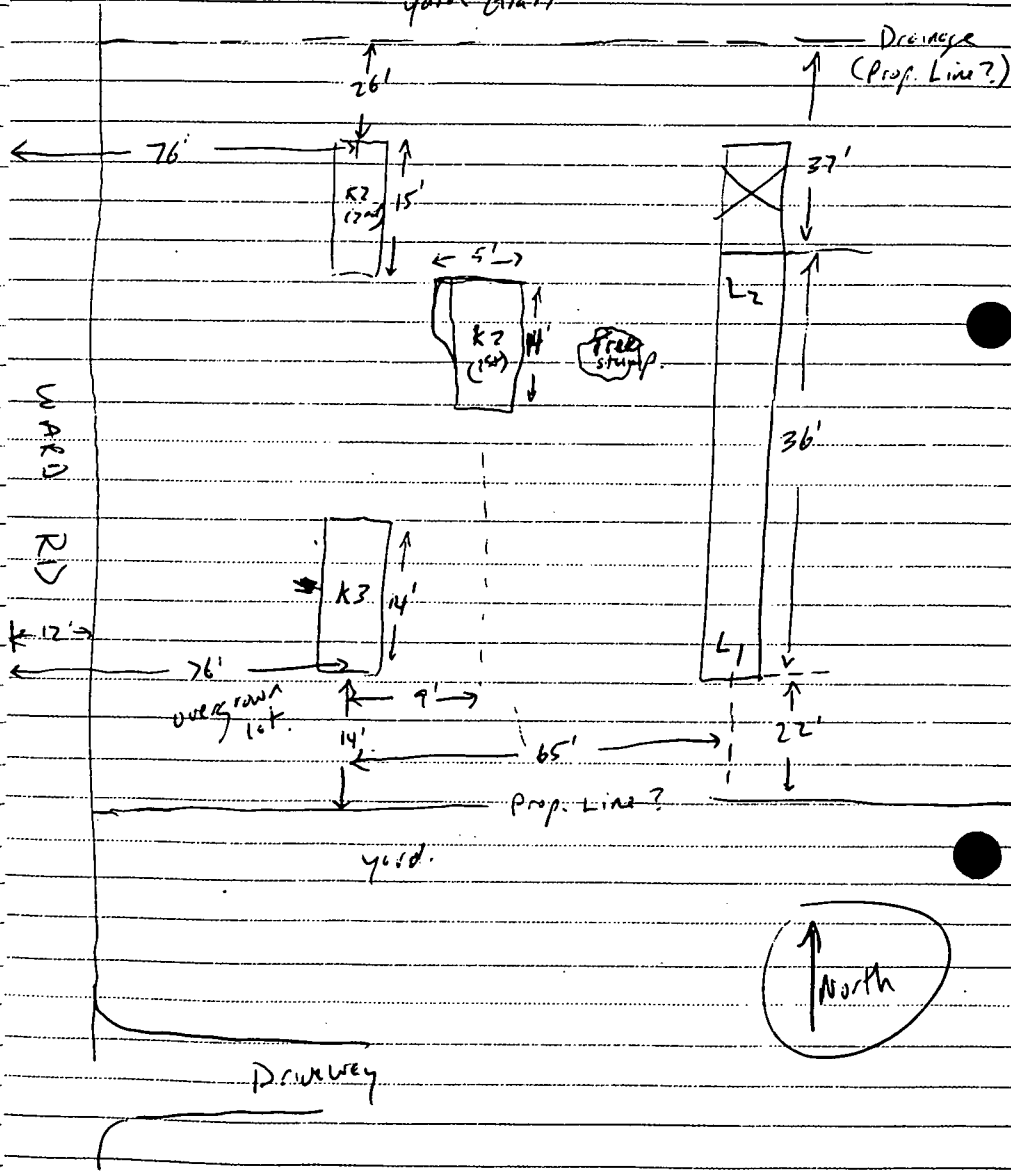 yard
Drainage
(Prop. Line?)
26'
76'
37'
K2
15'
5'
L2
K2
(1st)
14'
Tree
stump.
WARD RD
36'
K3
14'
12'
L1
76'
9'
22'
overgrown
lot.
14'
65'
Prop. Line?
yard.
North
Driveway